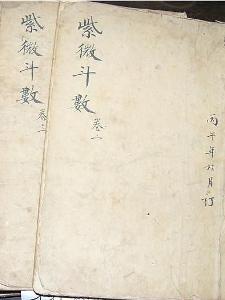 丙午年六月訂
紫微斗數
卷二
紫微斗數
卷三